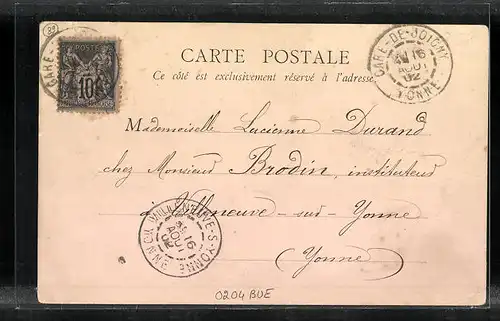 CARTE POSTALE
Ce côté est exclusivement réservé à l'adresse
GARE-DE-JOIGNY
16
AOUT
02
YONNE
89
GARE
POSTE
10
Mademoiselle Lucienne Durand
chez Monsieur Brodin, instituteur
à Villeneuve-sur-Yonne
(Yonne)
VILLENEUVE-S-YONNE
16
AOUT
02
YONNE
0204 BUE